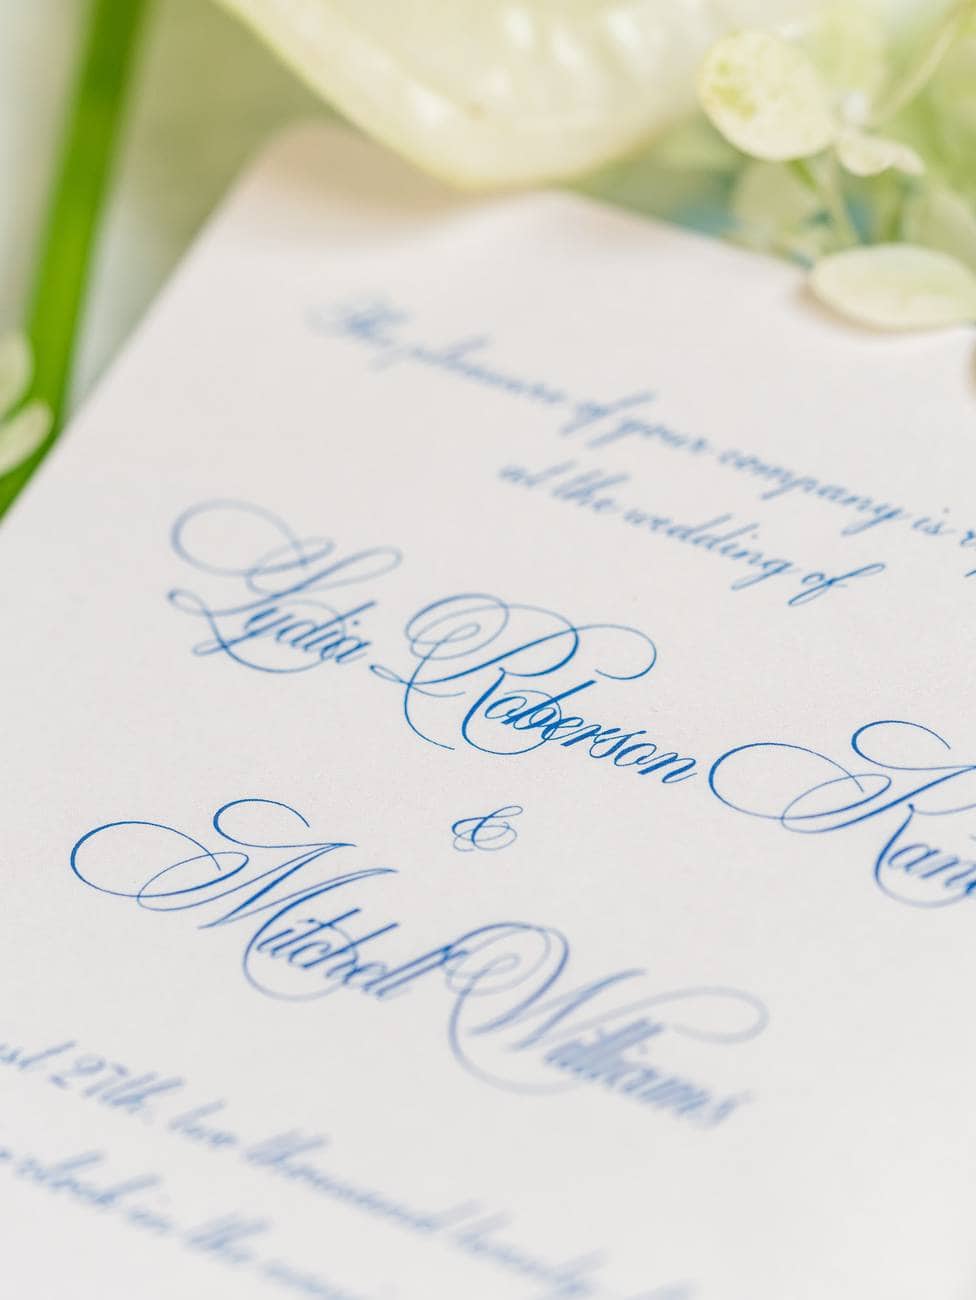 The pleasure of your company is
at the wedding of
Lydia Roberson
&
Mitchell Williams
27th, two thousand twenty
o'clock in the